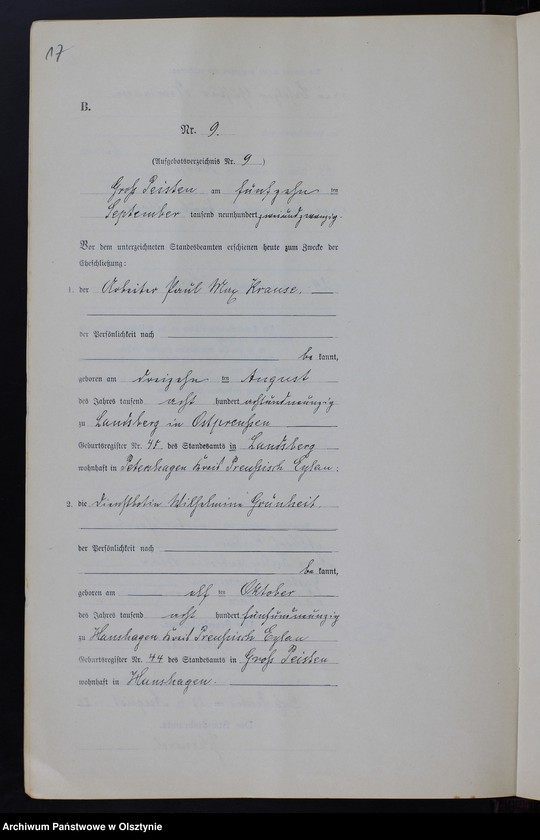 17
B.
Nr. 9.
(Aufgebotsverzeichnis Nr. 9)
Groß Peisten am fünfzehn im
September tausend neunhundert zweiundzwanzig.
Vor dem unterzeichneten Standesbeamten erschienen heute zum Zwecke der
Eheschließung:
1. der Arbeiter Paul Max Krause.
der Persönlichkeit nach
be kannt,
geboren am dreizehn im August
des Jahres tausend acht hundert achtundneunzig
zu Landsberg in Ostpreußen
Geburtsregister Nr. des Standesamts in Landsberg
wohnhaft in Petershagen Kreis Preußisch Eylau;
2. die Dienstbotin Wilhelmine Grünheit.
der Persönlichkeit nach
be kannt,
geboren am elf im Oktober
des Jahres tausend acht hundert fünfundneunzig
zu Hanshagen Kreis Preußisch Eylau
Geburtsregister Nr. 44 des Standesamts in Groß Peisten
wohnhaft in Hanshagen.
Archiwum Państwowe w Olsztynie